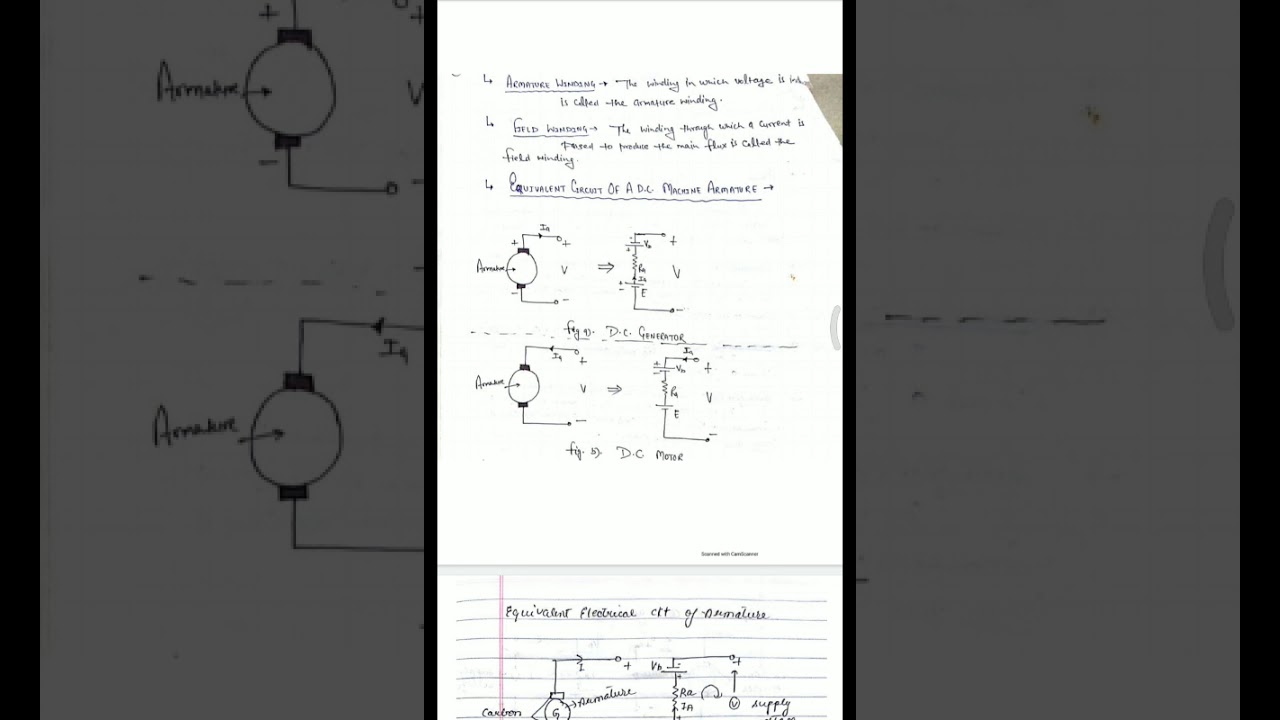 ↳ ARMATURE WINDING → The winding in which voltage is
is called the armature winding.
↳ FIELD WINDING → The winding through which a current is
Passed to produce the main flux is called the
field winding.
↳ EQUIVALENT CIRCUIT OF A D.C. MACHINE ARMATURE →
Ia
+ +
Armature V ⇒
- -
Vb +
+
Ra V
Ia
E
-
fig a). D.C. GENERATOR
Ia
+
Armature V ⇒
-
Ia
+ Vb +
-
Ra V
E
-
fig. b). D.C MOTOR
Scanned with CamScanner
Equivalent Electrical ckt of Armature
I +
Armature
Carbon G
Vb +
+
Ra
IA V supply
+
Armature
-
Ia
Armature